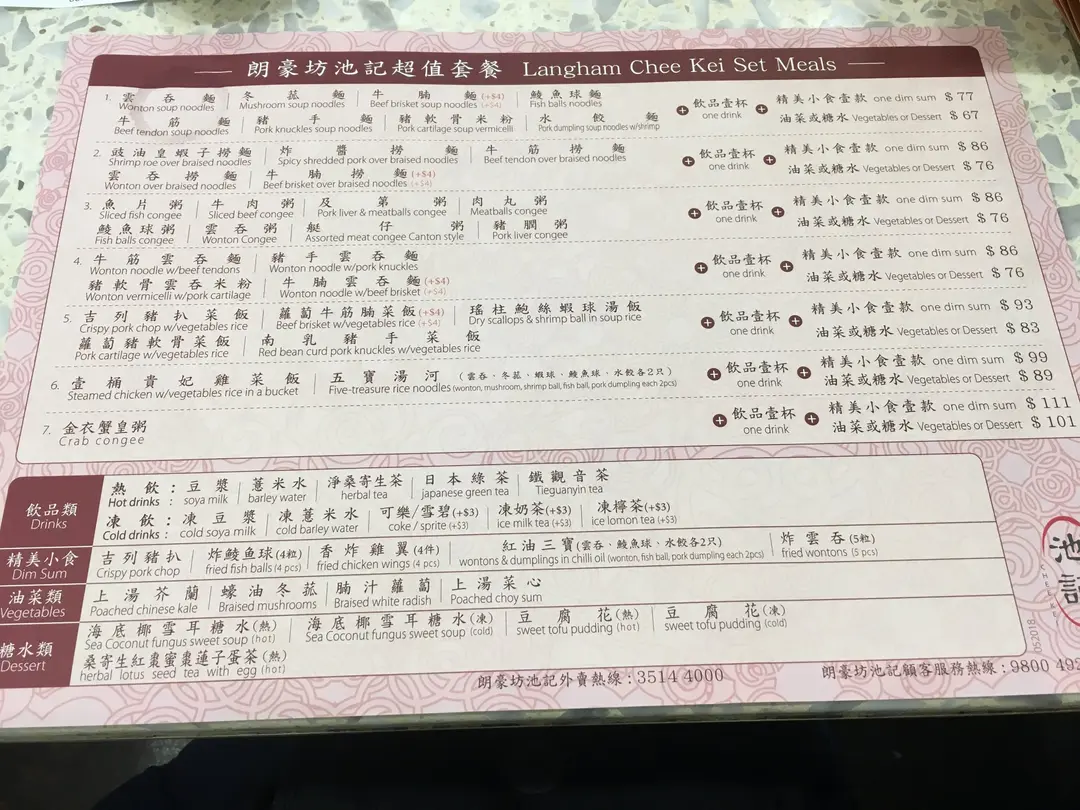 朗豪坊池記超值套餐 Langham Chee Kei Set Meals
1. 雲吞麵 冬菰麵 牛腩麵(+$4) 鯪魚球麵
Wonton soup noodles Mushroom soup noodles Beef brisket soup noodles (+$4) Fish balls noodles
牛筋麵 豬手麵 豬軟骨米粉 水餃麵
Beef tendon soup noodles Pork knuckles soup noodles Pork cartilage soup vermicelli Pork dumpling soup noodles w/shrimp
+ 飲品壹杯 + 精美小食壹款 one dim sum $77
one drink 油菜或糖水 Vegetables or Dessert $67
2. 豉油皇蝦子撈麵 炸醬撈麵 牛筋撈麵
Shrimp roe over braised noodles Spicy shredded pork over braised noodles Beef tendon over braised noodles
雲吞撈麵 牛腩撈麵(+$4)
Wonton over braised noodles Beef brisket over braised noodles (+$4)
+ 飲品壹杯 + 精美小食壹款 one dim sum $86
one drink 油菜或糖水 Vegetables or Dessert $76
3. 魚片粥 牛肉粥 及第粥 肉丸粥
Sliced fish congee Sliced beef congee Pork liver & meatballs congee Meatballs congee
鯪魚球粥 雲吞粥 艇仔粥 豬膶粥
Fish balls congee Wonton Congee Assorted meat congee Canton style Pork liver congee
+ 飲品壹杯 + 精美小食壹款 one dim sum $86
one drink 油菜或糖水 Vegetables or Dessert $76
4. 牛筋雲吞麵 豬手雲吞麵
Wonton noodle w/beef tendons Wonton noodle w/pork knuckles
豬軟骨雲吞米粉 牛腩雲吞麵(+$4)
Wonton vermicelli w/pork cartilage Wonton noodle w/beef brisket (+$4)
+ 飲品壹杯 + 精美小食壹款 one dim sum $86
one drink 油菜或糖水 Vegetables or Dessert $76
5. 吉列豬扒菜飯 蘿蔔牛筋腩菜飯(+$4) 瑤柱鮑絲蝦球湯飯
Crispy pork chop w/vegetables rice Beef brisket w/vegetables rice (+$4) Dry scallops & shrimp ball in soup rice
蘿蔔豬軟骨菜飯 南乳豬手菜飯
Pork cartilage w/vegetables rice Red bean curd pork knuckles w/vegetables rice
+ 飲品壹杯 + 精美小食壹款 one dim sum $93
one drink 油菜或糖水 Vegetables or Dessert $83
6. 壹桶貴妃雞菜飯 五寶湯河 (雲吞、冬菰、蝦球、鯪魚球、水餃各2只)
Steamed chicken w/vegetables rice in a bucket Five-treasure rice noodles (wonton, mushroom, shrimp ball, fish ball, pork dumpling each 2pcs)
+ 飲品壹杯 + 精美小食壹款 one dim sum $99
one drink 油菜或糖水 Vegetables or Dessert $89
7. 金衣蟹皇粥
Crab congee
+ 飲品壹杯 + 精美小食壹款 one dim sum $111
one drink 油菜或糖水 Vegetables or Dessert $101
飲品類
Drinks
熱飲：豆漿 薏米水 淨桑寄生茶 日本綠茶 鐵觀音茶
Hot drinks : soya milk barley water herbal tea japanese green tea Tieguanyin tea
凍飲：凍豆漿 凍薏米水 可樂/雪碧(+$3) 凍奶茶(+$3) 凍檸茶(+$3)
Cold drinks : cold soya milk cold barley water coke / sprite (+$3) ice milk tea (+$3) ice lomon tea (+$3)
精美小食
Dim Sum
吉列豬扒 炸鯪魚球(4粒) 香炸雞翼(4件) 紅油三寶(雲吞、鯪魚球、水餃各2只) 炸雲吞(5粒)
Crispy pork chop fried fish balls (4 pcs) fried chicken wings (4 pcs) wontons & dumplings in chilli oil (wonton, fish ball, pork dumpling each 2pcs) fried wontons (5 pcs)
油菜類
Vegetables
上湯芥蘭 蠔油冬菰 腩汁蘿蔔 上湯菜心
Poached chinese kale Braised mushrooms Braised white radish Poached choy sum
糖水類
Dessert
海底椰雪耳糖水(熱) 海底椰雪耳糖水(凍) 豆腐花(熱) 豆腐花(凍)
Sea Coconut fungus sweet soup (hot) Sea Coconut fungus sweet soup (cold) sweet tofu pudding (hot) sweet tofu pudding (cold)
桑寄生紅棗蜜棗蓮子蛋茶(熱)
herbal lotus seed tea with egg (hot)
朗豪坊池記外賣熱線：3514 4000
朗豪坊池記顧客服務熱線：9800 492
052018
池記
CHEE KEI